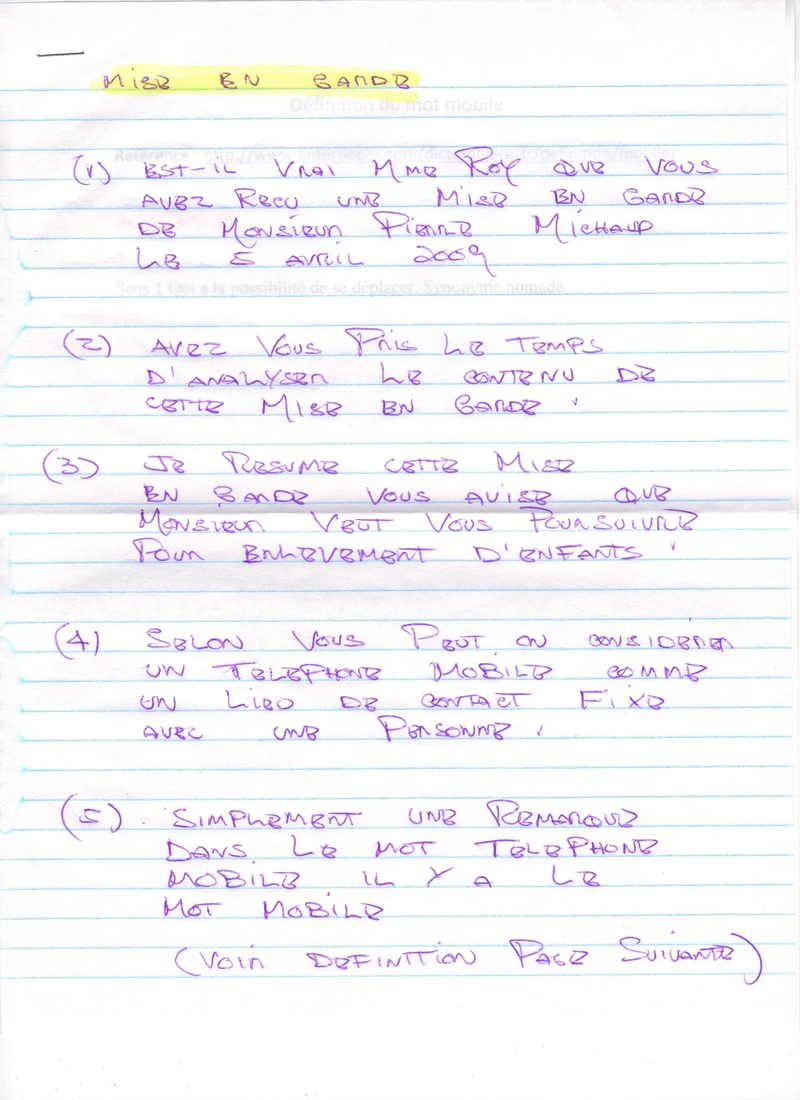 MISE EN GARDE
Définition du mot mobile
(1) EST-IL VRAI MME ROY QUE VOUS
AVEZ RECU UNE MISE EN GARDE
DE MONSIEUR PIERRE MICHAUD
LE 5 AVRIL 2009
Sens 1 Qui a la possibilité de se déplacer. Synonyme nomade
(2) AVEZ VOUS PRIS LE TEMPS
D'ANALYSER LE CONTENU DE
CETTE MISE EN GARDE
(3) JE RESUME CETTE MISE
EN GARDE VOUS AVISE QUE
MONSIEUR VEUT VOUS POURSUIVRE
POUR ENLEVEMENT D'ENFANTS
(4) SELON VOUS PEUT ON CONSIDERER
UN TELEPHONE MOBILE COMME
UN LIEU DE CONTACT FIXE
AVEC UNE PERSONNE
(5) SIMPLEMENT UNE REMARQUE
DANS LE MOT TELEPHONE
MOBILE IL Y A LE
MOT MOBILE
(VOIR DEFINITION PAGE SUIVANTE)